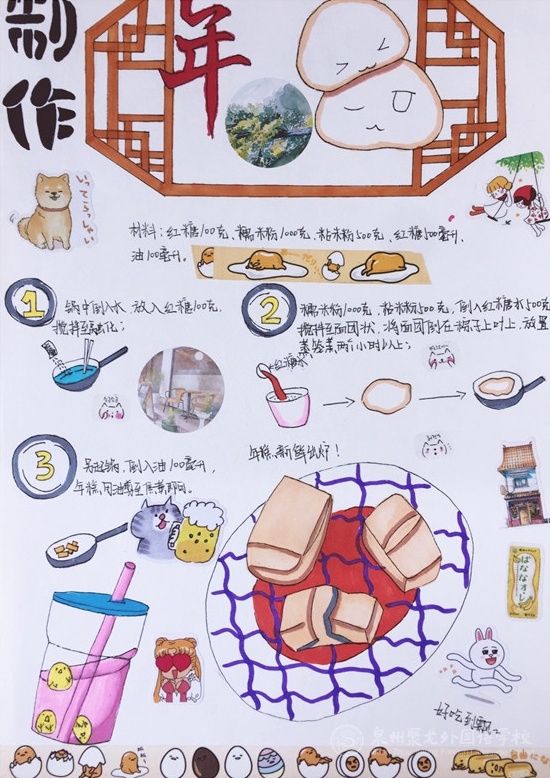 制作
年
いってらっしゃい
材料：红糖100克、糯米粉1000克、粘米粉500克、红糖500毫升、
油100毫升。
1
锅中倒入水，放入红糖100克，
搅拌至融化；
2
糯米粉1000克，粘米粉500克，倒入红糖水500
搅拌至面团状，将面团倒在粽子上叶上，放置
蒸笼蒸两个小时以上；
红糖水
3
另起锅，倒入油100毫升，
年糕用油煎至焦黄即可。
年糕新鲜出炉！
ばななオ・レ
好吃到飘
泉州聚龙外国语学校